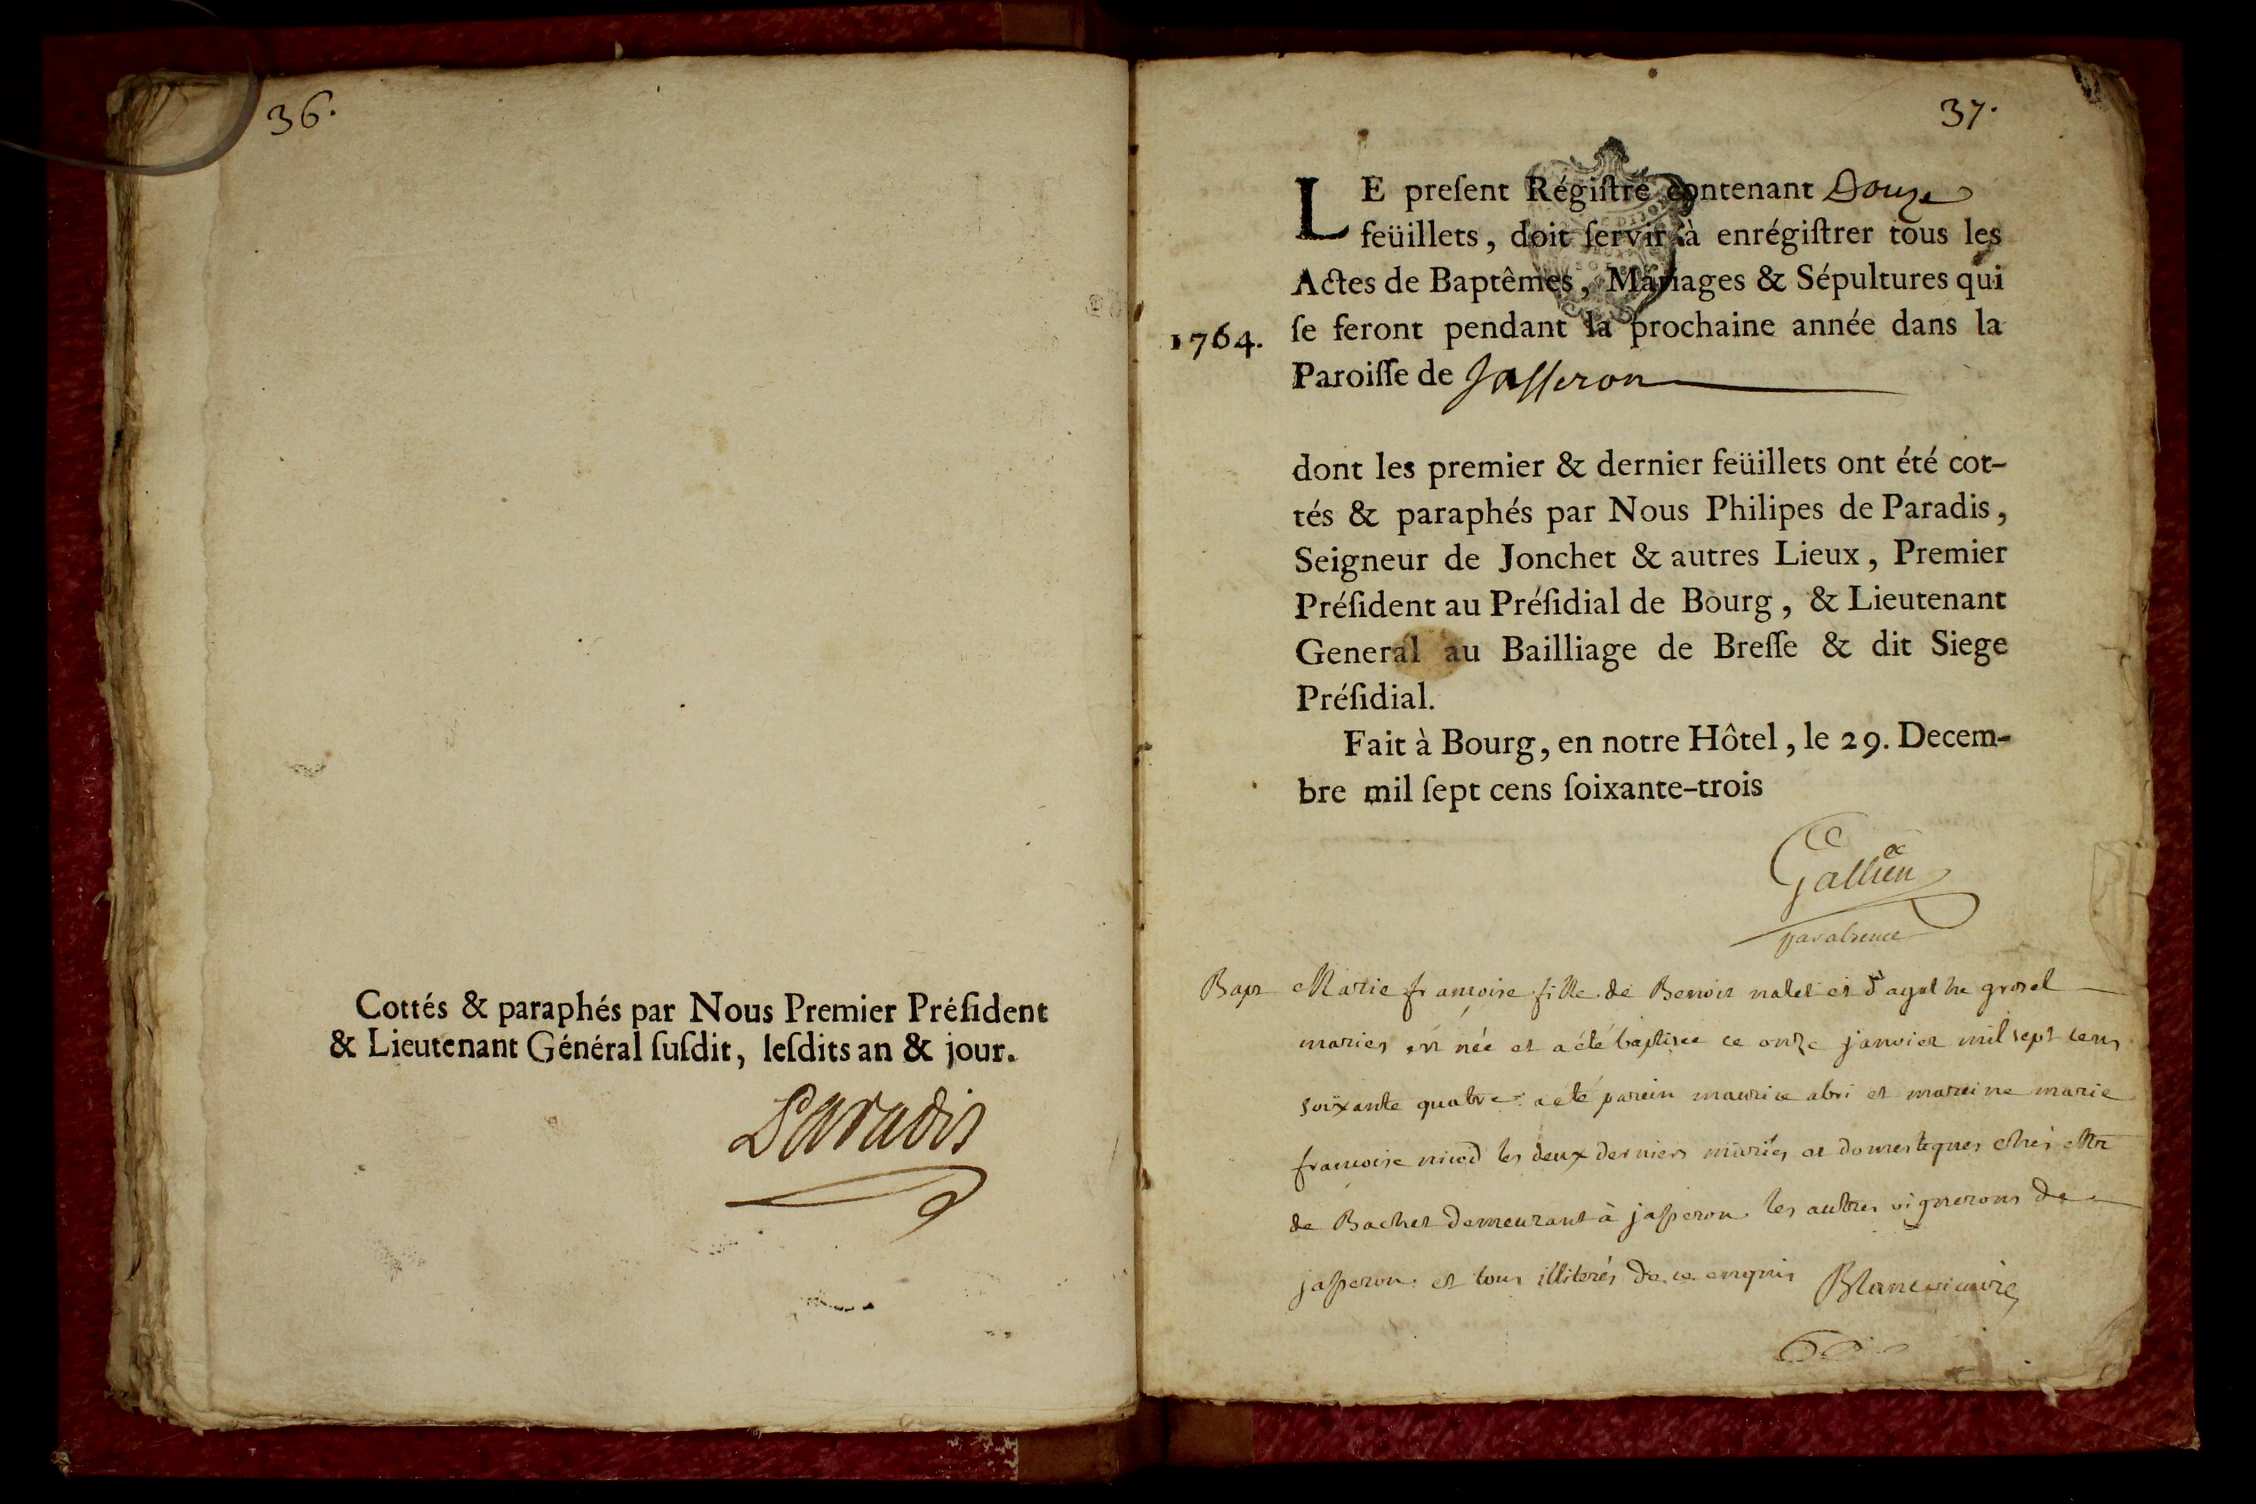 36.
Cottés & paraphés par Nous Premier Préſident
& Lieutenant Général ſuſdit, leſdits an & jour.
Paradis
37.
LE preſent Régiſtre contenant Douze
feüillets, doit ſervir à enrégiſtrer tous les
Actes de Baptêmes, Mariages & Sépultures qui
1764. ſe feront pendant la prochaine année dans la
Paroiſſe de Jasseron
dont les premier & dernier feüillets ont été cot-
tés & paraphés par Nous Philipes de Paradis,
Seigneur de Jonchet & autres Lieux, Premier
Préſident au Préſidial de Bourg, & Lieutenant
General au Bailliage de Breſſe & dit Siege
Préſidial.
Fait à Bourg, en notre Hôtel, le 29. Decem-
bre mil ſept cens ſoixante-trois
Gallien
par absence
Bapt Marie françoise fille de Benoit nalet et d'agathe grosel
mariés est née et a été baptisee ce onze janvier mil sept cens
soixante quatre: a été parein maurice abri et mareine marie
francoise nicod les deux derniers mariés et domestiques chés Mr
de Bachet demeurant à jasseron les autres vignerons de
jasseron. et tous illiterés de ce enquis Blanc vicaire